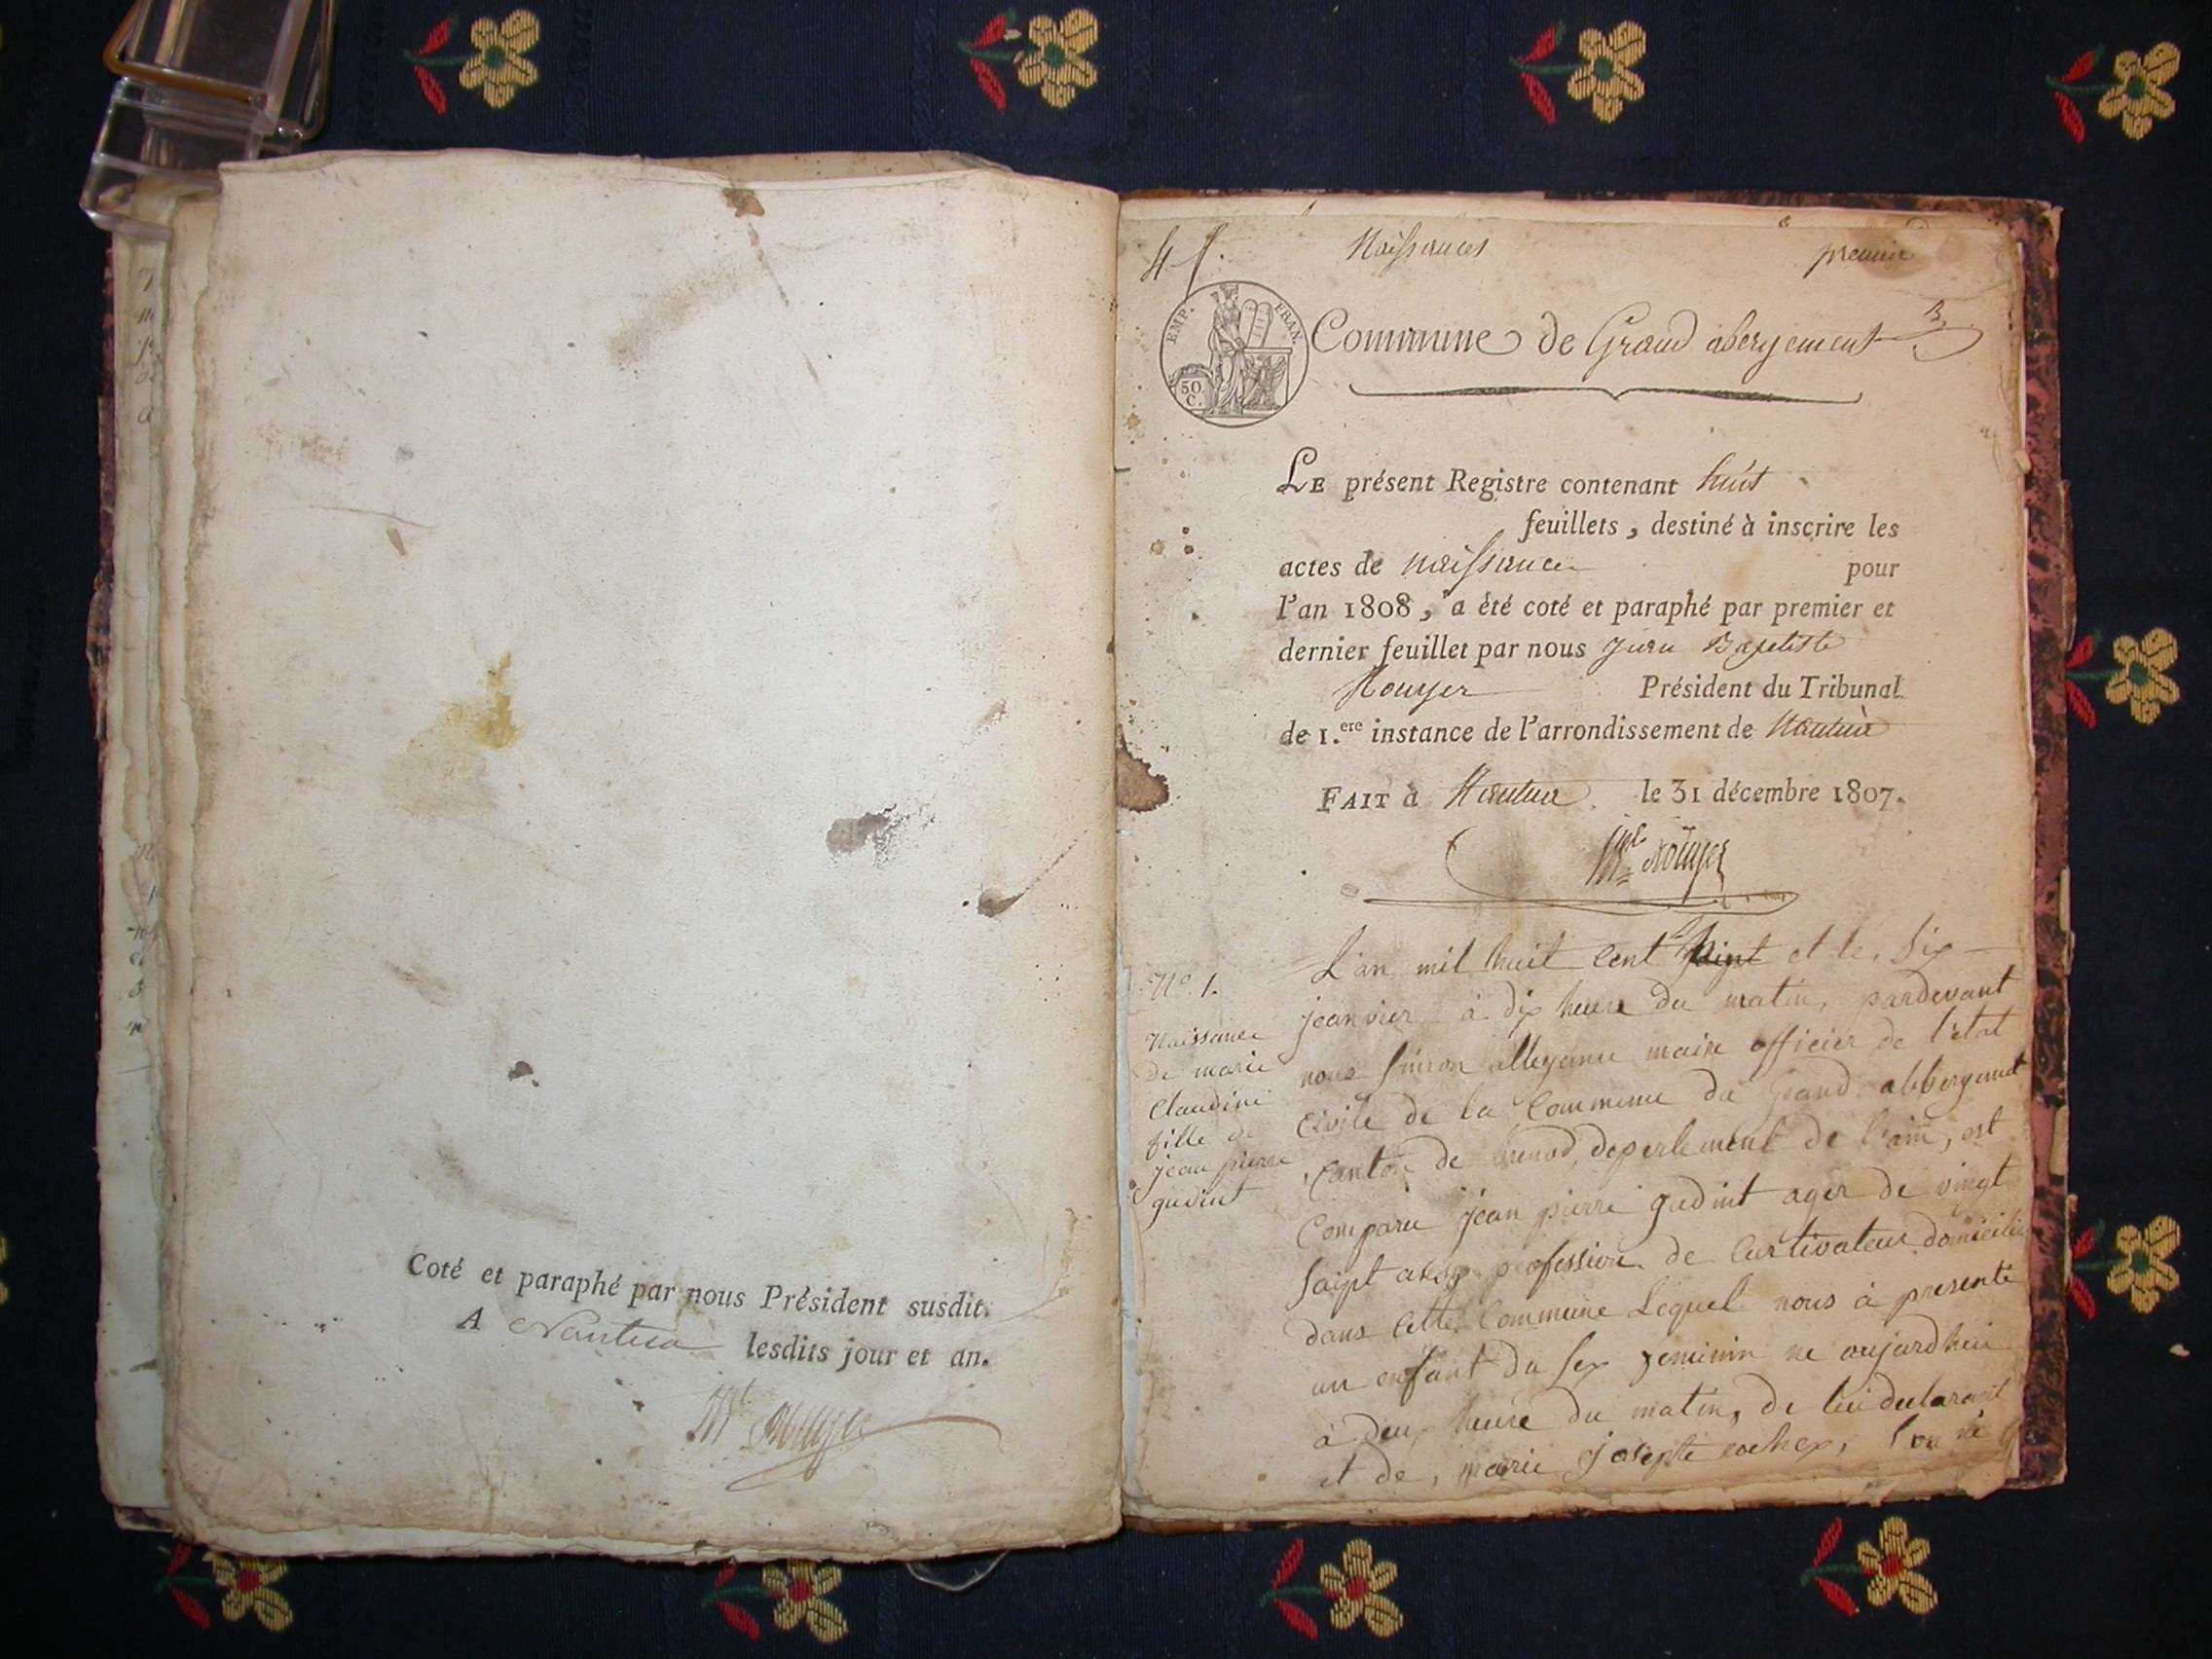 Coté et paraphé par nous Président susdit.
A Nantua lesdits jour et an.
Rouyer
4 f.
Naissances
premier
EMP. FRAN.
50 C.
Commune de Grand abergement
LE présent Registre contenant huit
feuillets, destiné à inscrire les
actes de naissance pour
l'an 1808, a été coté et paraphé par premier et
dernier feuillet par nous Jean Baptiste
Rouyer Président du Tribunal
de 1.ere instance de l'arrondissement de Nantua
FAIT à Nantua le 31 décembre 1807.
Rouyer
N° 1.
Naissance
de marie
Claudine
fille de
jean pierre
gudint
L'an mil huit Cent huit et le, six
jeanvier à dix heure du matin, pardevant
nous simon alleyenne maire officier de l'etat
Civile de la Commune du grand abbergement
Canton de brenod, deperlement de l'ain, est
Comparu jean pierre gudint ager de vingt
saipt ans profession de Curtivateur domicilie
dans Cette Commune Lequel nous à presenté
un enfant du sex feminin ne aujardhui
à deux heure du matin, de lui declarant
et de, marie josepte